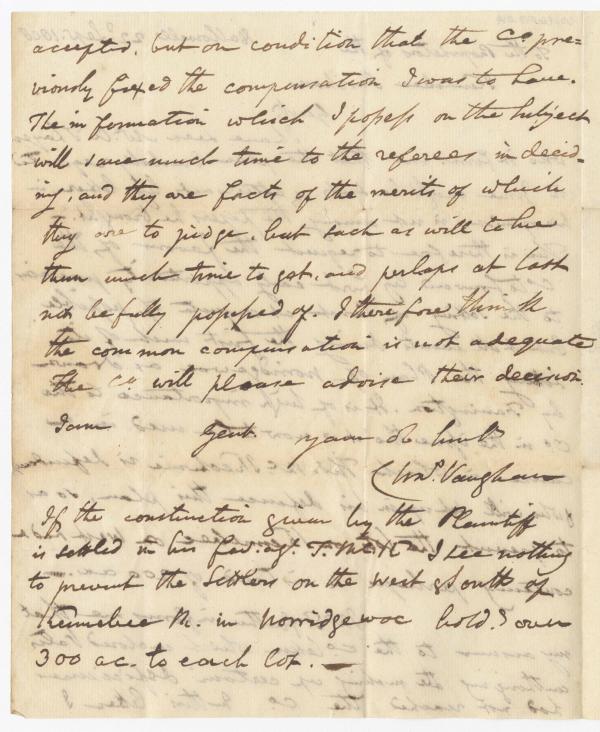 accepted. but on condition that the Co. pre-
viously fixed the compensation I was to have.
The information which I possess on the subject
will save much time to the referees in decid-
ing, and they are facts of the merits of which
they are to judge. but such as will take
them much time to get, and perhaps at last
not be fully possessed of. I therefore think
the common compensation is not adequate
The Co. will please advise their decision.
I am Gent. your ob
Vaughan
If the construction given by the Plaintiff
is settled in his fav. agt. T. McK I see nothing
to prevent the Settlers on the west & South of
Kennebec R. in Norridgewoc hold.g over
300 ac. to each lot. —